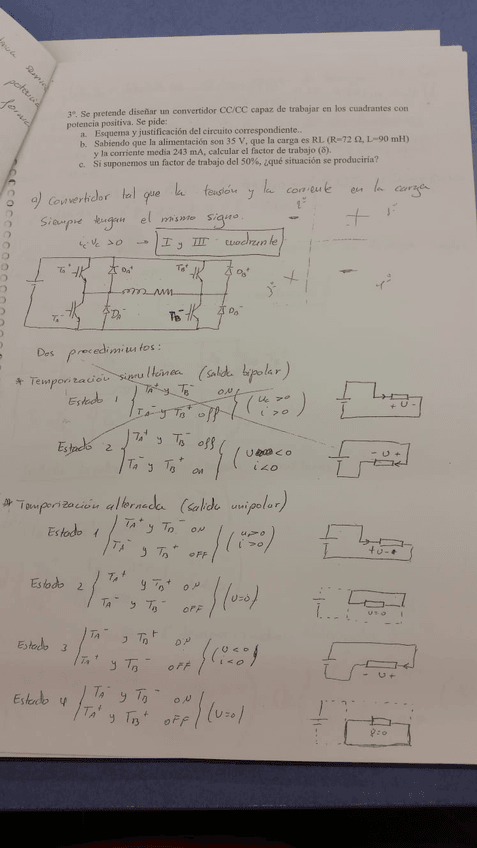 3º. Se pretende diseñar un convertidor CC/CC capaz de trabajar en los cuadrantes con
potencia positiva. Se pide:
a. Esquema y justificación del circuito correspondiente..
b. Sabiendo que la alimentación son 35 V, que la carga es RL (R=72 Ω, L=90 mH)
y la corriente media 243 mA, calcular el factor de trabajo (δ).
c. Si suponemos un factor de trabajo del 50%, ¿qué situación se produciría?
a) Convertidor tal que la tensión y la corriente en la carga
Siempre tengan el mismo signo.
2º - + 1º
i·Vc >0 → I y III cuadrante
3º + - 4º
TA+ DA+ TB+ DB+
TA- DA- TB- DB-
Dos procedimientos:
* Temporización simultánea (salida bipolar)
Estado 1 { TA+ y TB- ON
TA- y TB+ OFF } ( uc >0
i >0 )
+ U -
Estado 2 { TA+ y TB- OFF
TA- y TB+ ON } ( U <0
i <0
- U +
* Temporización alternada (salida unipolar)
Estado 1 { TA+ y TB- ON
TA- y TB+ OFF } ( u>0
i >0 )
+ U -
Estado 2 { TA+ y TB+ ON
TA- y TB- OFF } (U=0)
U=0
Estado 3 { TA- y TB+ ON
TA+ y TB- OFF } ( U<0
i<0 )
- U +
Estado 4 { TA- y TB- ON
TA+ y TB+ OFF } (U=0)